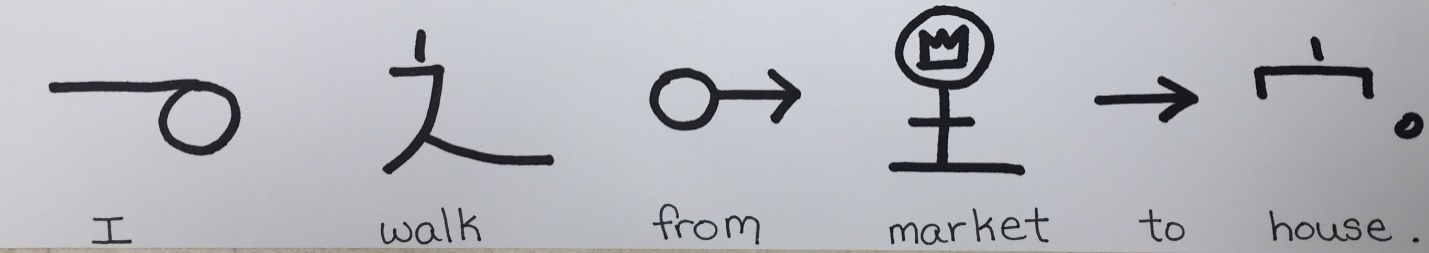 I walk from market to house.